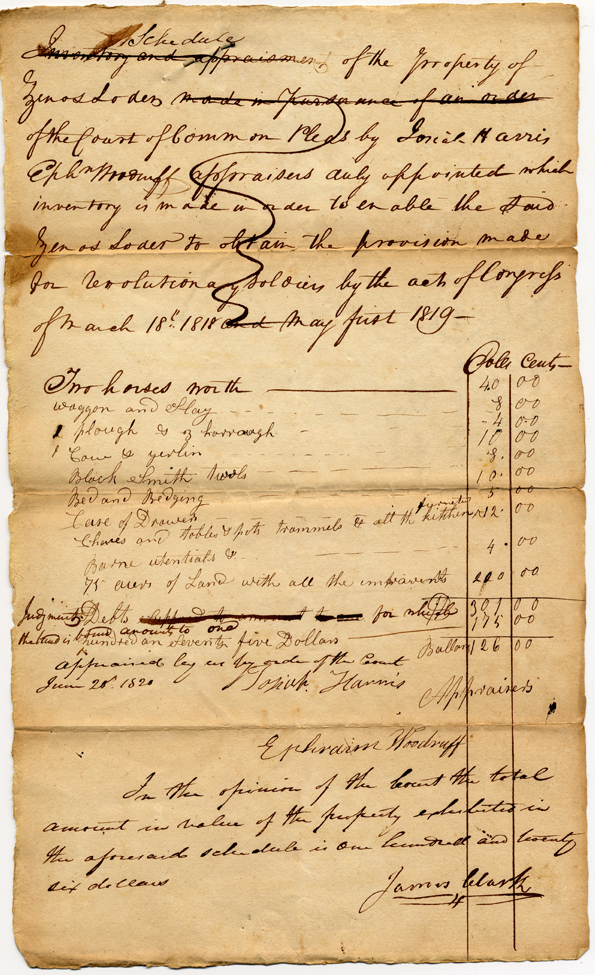 Schedule
Inventory and appraisment of the Property of
Zenos Loder made in Pursuance of an order
of the Court of Common Pleas by Josiah Harris
Ephm Woodruff appraisers duly appointed which
inventory is made in order to enable the said
Zenos Loder to obtain the provision made
for revolutionary soldiers by the acts of Congress
of March 18th 1818 and May first 1819 —
Dolls Cents
Two horses worth 40 00
waggon and Slay 8 00
1 plough & oz harrough 4 00
1 Cow & yerlin 10 00
Black Smith tools 8 00
Bed and Bedging 10 00
Case of Drawers 5 00
furniter
Chares and tables & pots trammels & all the kitchen 12 00
Barne utentials & 4 00
75 acers of Land with all the impravents 200 00
301 00
Judgments Debts for which 175 00
the land is bound amounts to one
hundred an Seventy five Dollars Ballans 126 00
appraised by us by order of the Court
June 28th 1820 Josiah Harris
Appraisers
Ephraim Woodruff
In the opinion of the Court the total
amount in value of the property exhibited in
the aforesaid schedule is one hundred and twenty
six dollars
James Clark